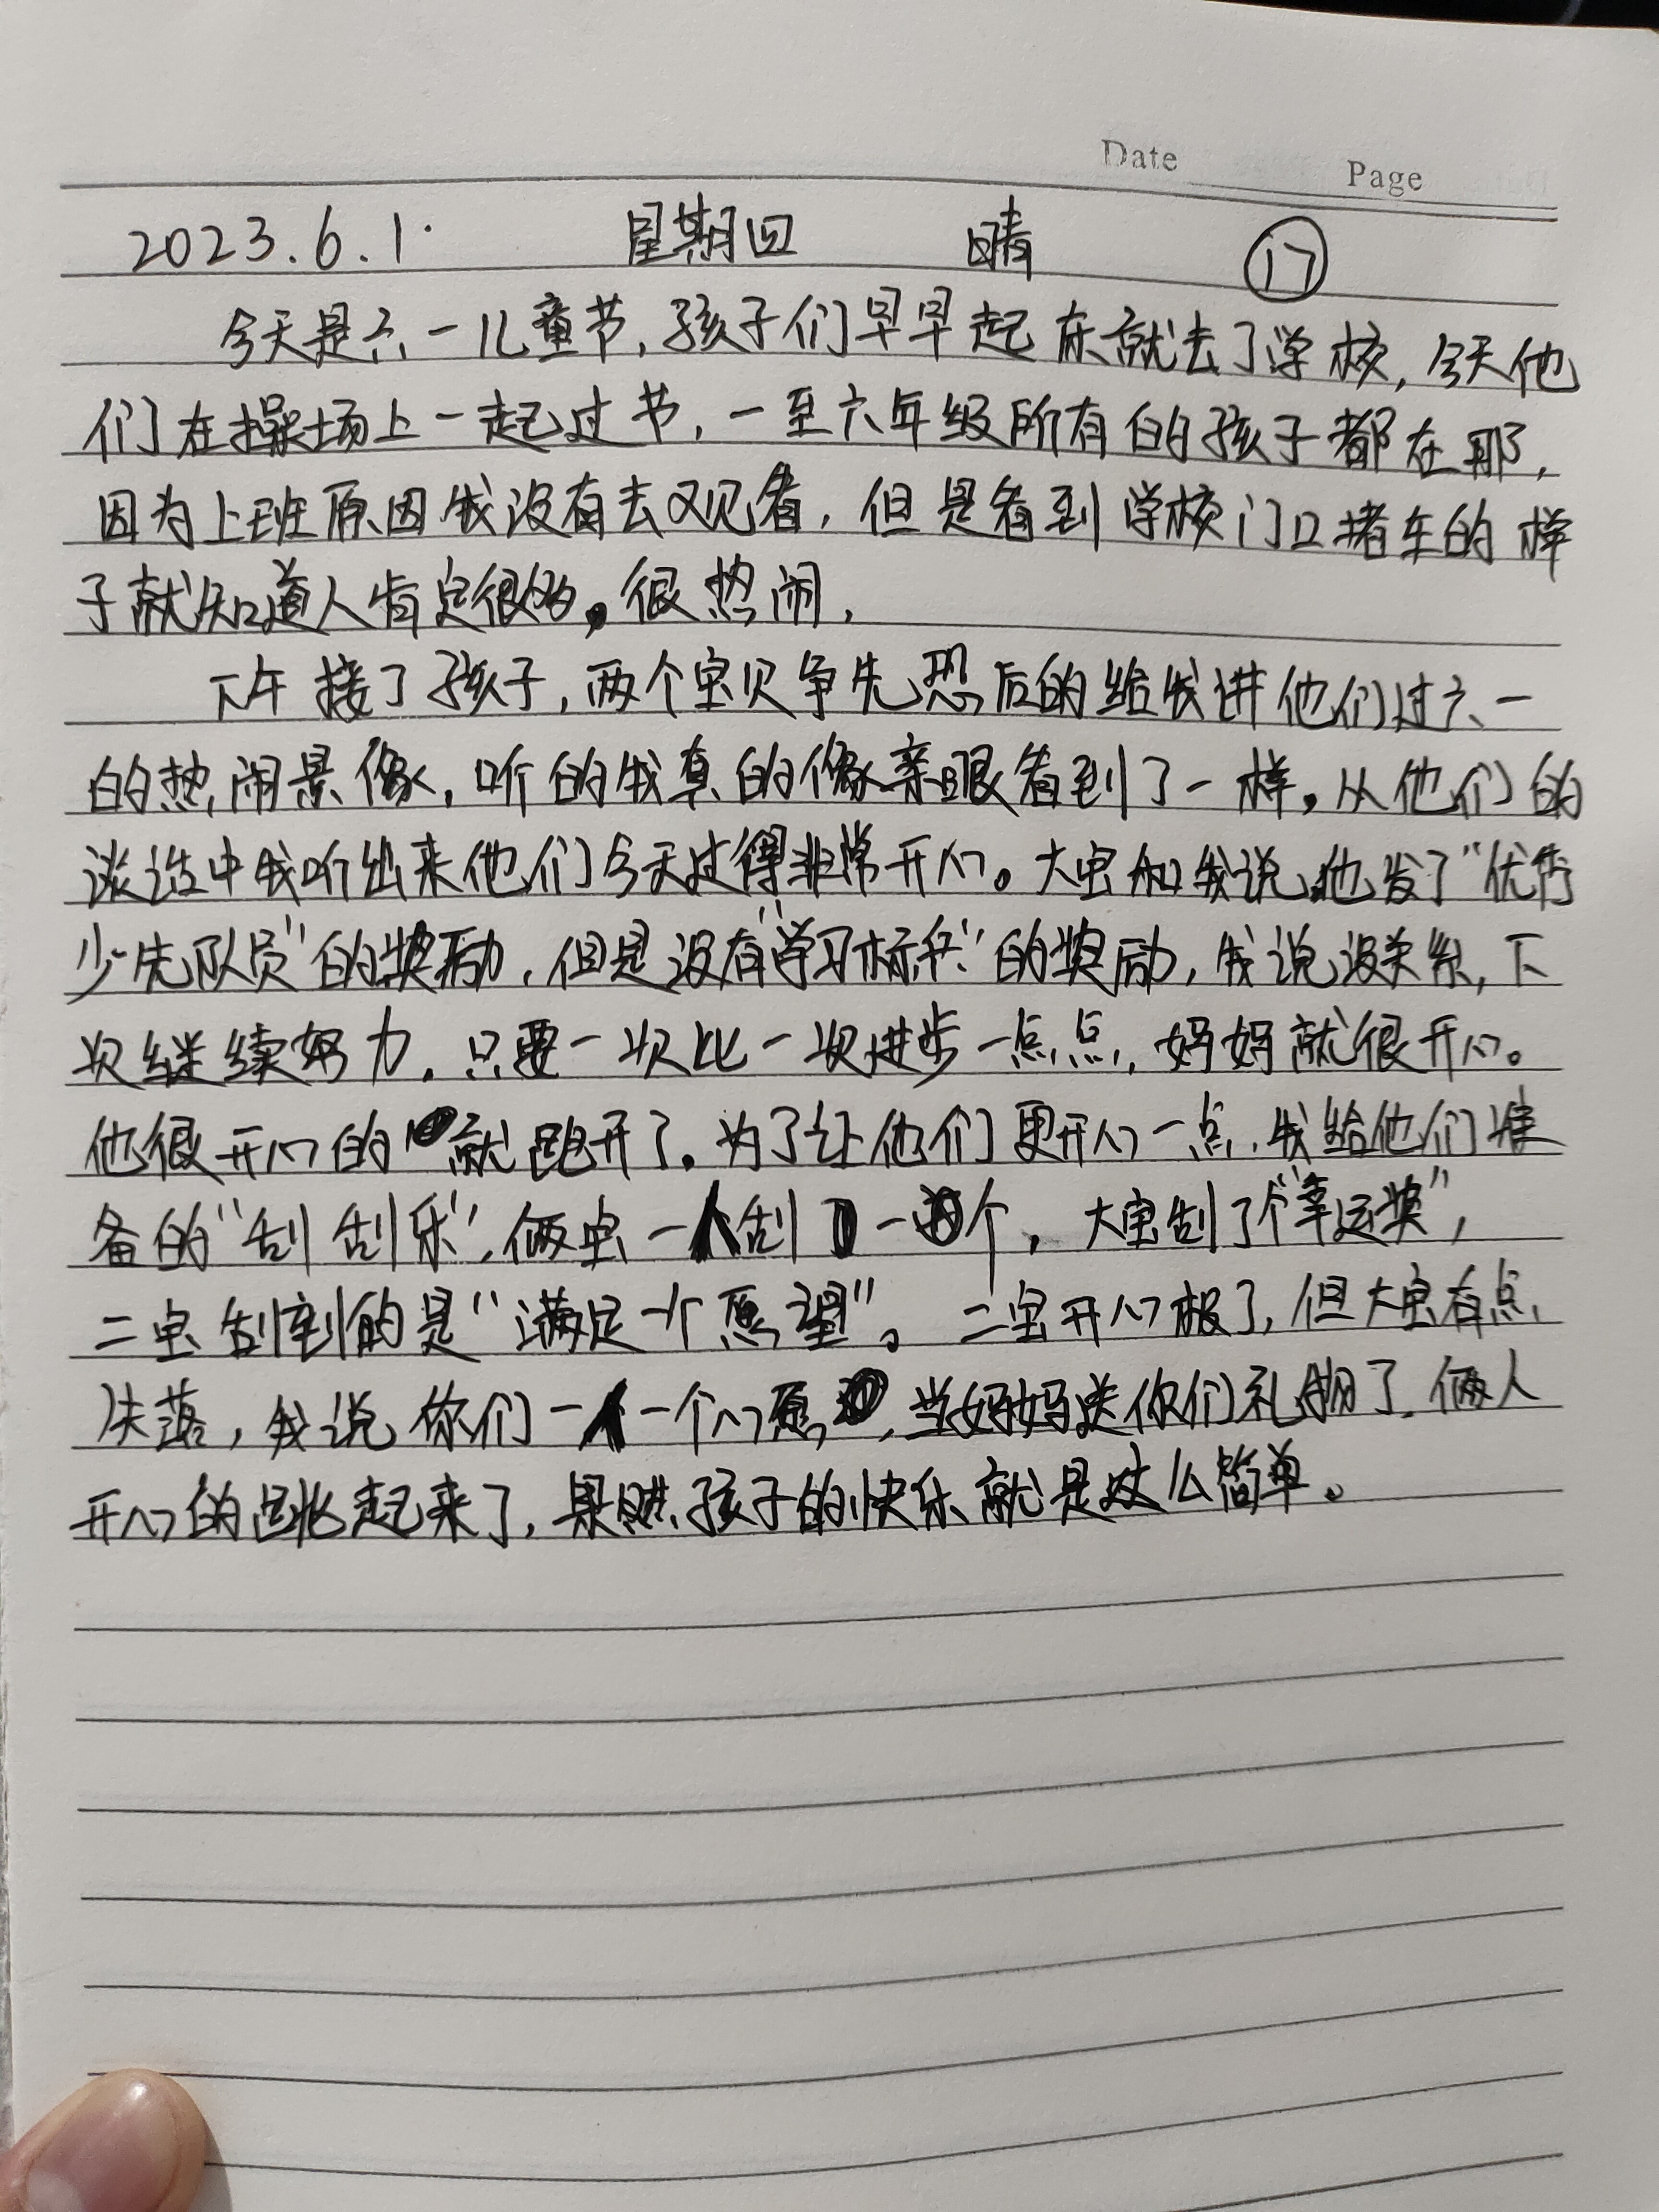 Date Page
2023.6.1. 星期四 晴 ⑰
今天是六一儿童节,孩子们早早起床就去了学校,今天他
们在操场上一起过节,一至六年级所有的孩子都在那,
因为上班原因我没有去观看,但是看到学校门口堵车的样
子就知道人肯定很多。很热闹,
下午接了孩子,两个宝贝争先恐后的给我讲他们过六一
的热闹景像,听的我真的像亲眼看到了一样。从他们的
谈话中我听出来他们今天过得非常开心。大宝和我说他发了“优秀
少先队员”的奖励,但是没有“学习标兵”的奖励,我说没关系,下
次继续努力,只要一次比一次进步一点点,妈妈就很开心。
他很开心的就跑开了。为了让他们更开心一点,我给他们准
备的“刮刮乐”,俩宝一人刮了一个,大宝刮了个“幸运奖”,
二宝刮到的是“满足一个愿望”。二宝开心极了,但大宝有点
失落,我说你们一人一个心愿,当妈妈送你们礼物了,俩人
开心的跳起来了,果然孩子的快乐就是这么简单。